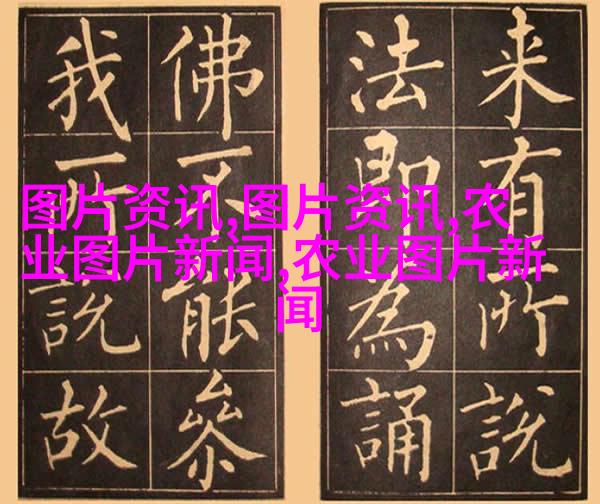 来有所說
法即為誦
佛不能參
我所說故
图片资讯,图片资讯,农
业图片新闻,农业图片新
闻